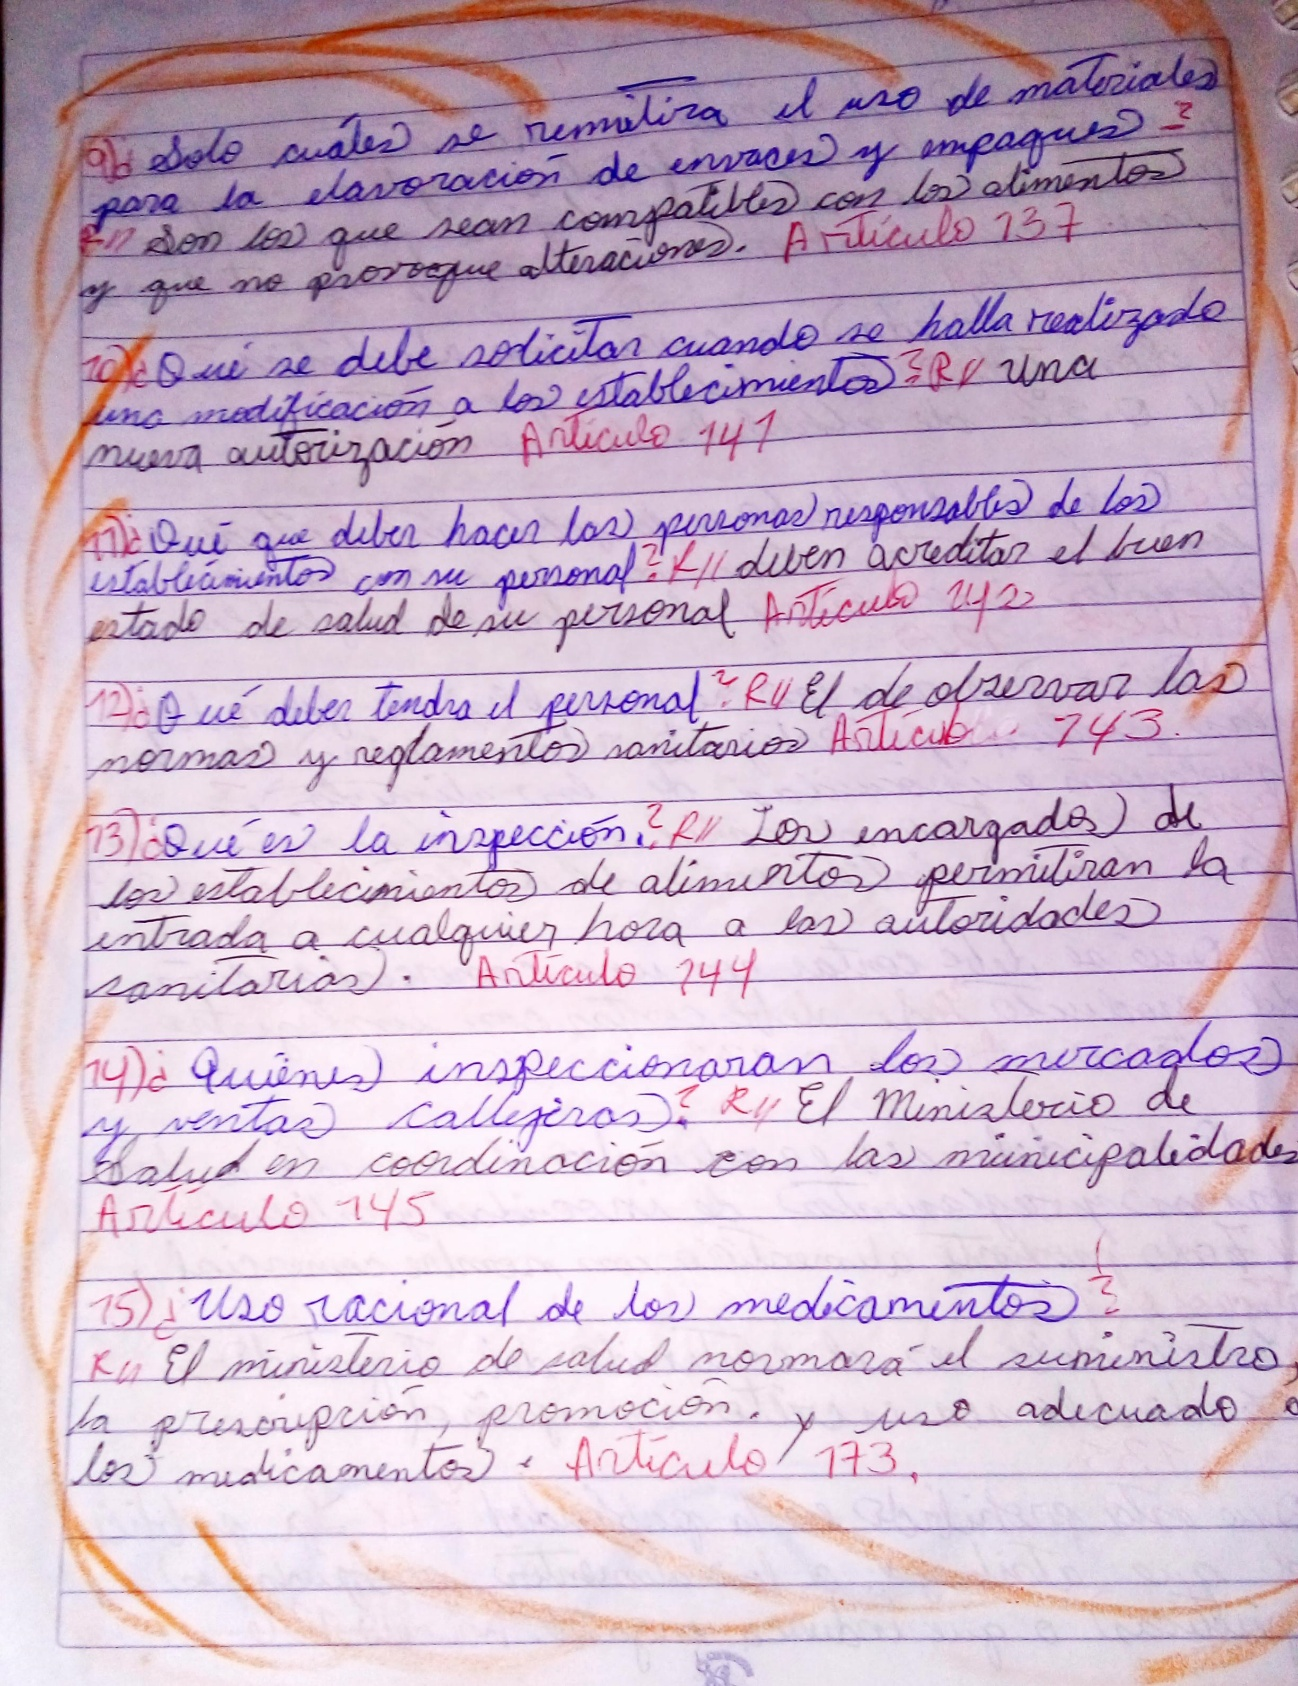 9)¿ Solo cuáles se remitira el uso de materiales
para la elavoración de envaces y empaques?
R// Son los que sean compatibles con los alimentos
y que no provoque alteraciones. Artículo 137
10)¿Qué se debe solicitar cuando se halla realizado
una modificación a los establecimientos? R// una
nueva autorización Artículo 141
11)¿Qué que deber hacer las personas responsables de los
establecimientos con su personal? R// deben acreditar el buen
estado de salud de su personal Artículo 142
12)¿Qué deber tendra el personal? R// El de observar las
normas y reglamentos sanitarios Artículo 143.
13)¿Qué es la inspección.? R// Los encargados de
los establecimientos de alimentos permitiran la
entrada a cualquier hora a las autoridades
sanitarias. Artículo 144
14)¿ Quiénes inspeccionaran los mercados
y ventas callejeras? R// El Ministerio de
Salud en coordinación con las municipalidades
Artículo 145
15)¿Uso racional de los medicamentos?
R// El ministerio de salud normará el suministro,
la prescripción, promoción. y uso adecuado
los medicamentos. Artículo 173.